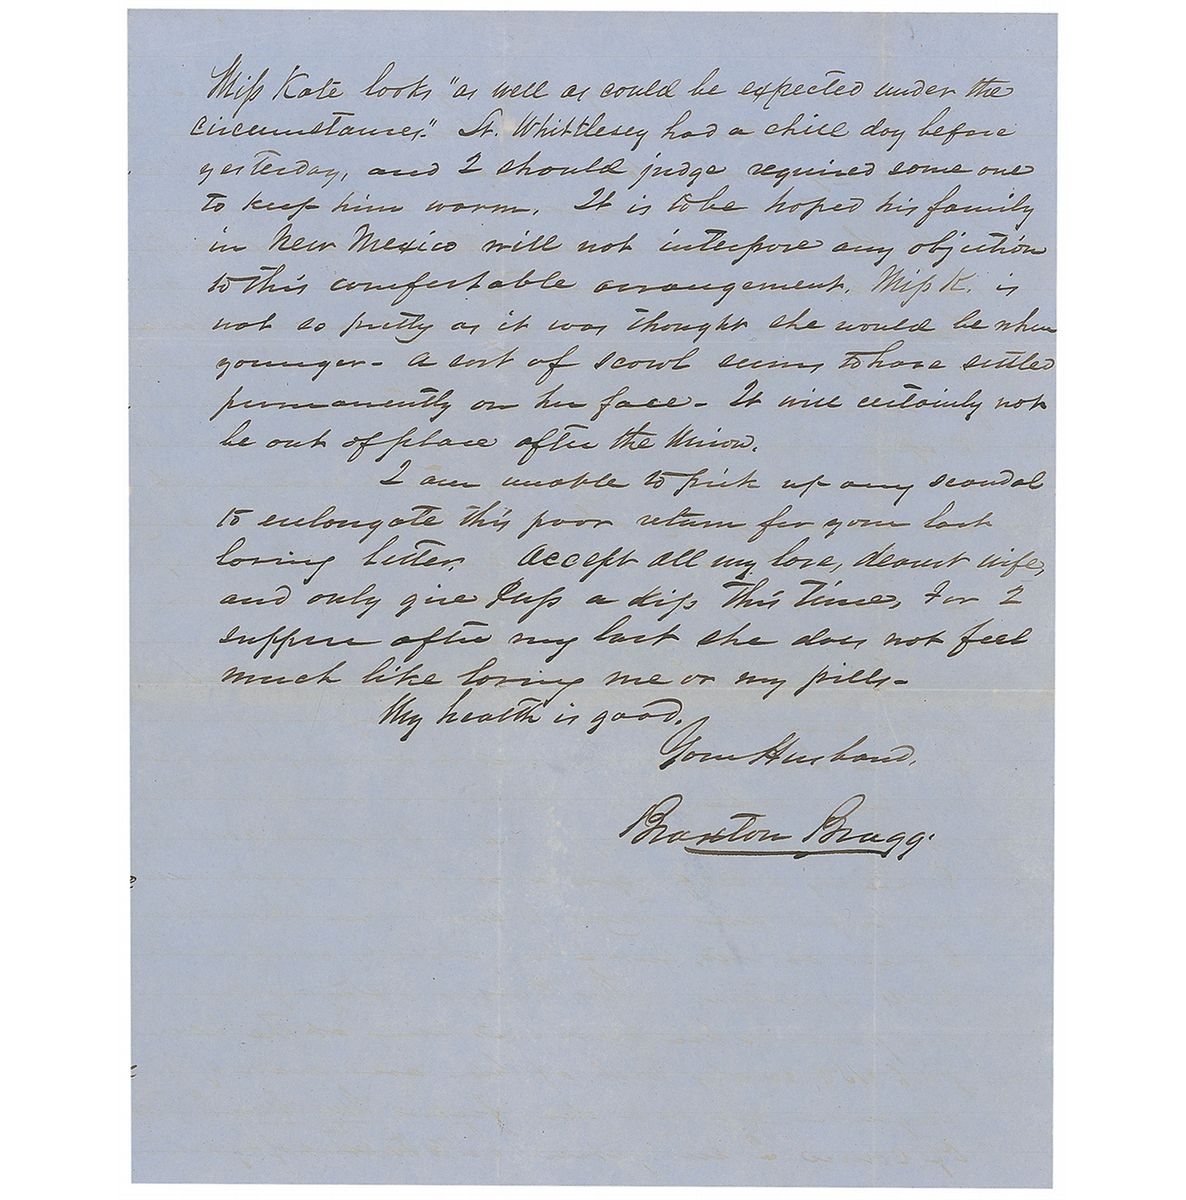 Miss Kate looks "as well as could be expected under the
circumstances." Lt. Whittlesey had a chill day before
yesterday, and I should judge required some one
to keep him warm. It is to be hoped his family
in New Mexico will not interpose any objection
to this comfortable arrangement. Miss K. is
not so pretty as it was thought she would be when
younger - a sort of scowl seems to have settled
permanently on her face - It will certainly not
be out of place after the Union.
I am unable to pick up any scandal
to enlongate this poor return for your last
loving letter. Accept all my love, dearest wife,
and only give Puss a kiss this time, For I
suppose after my last she does not feel
much like loving me or my pills -
My health is good.
Your Husband,
Braxton Bragg.